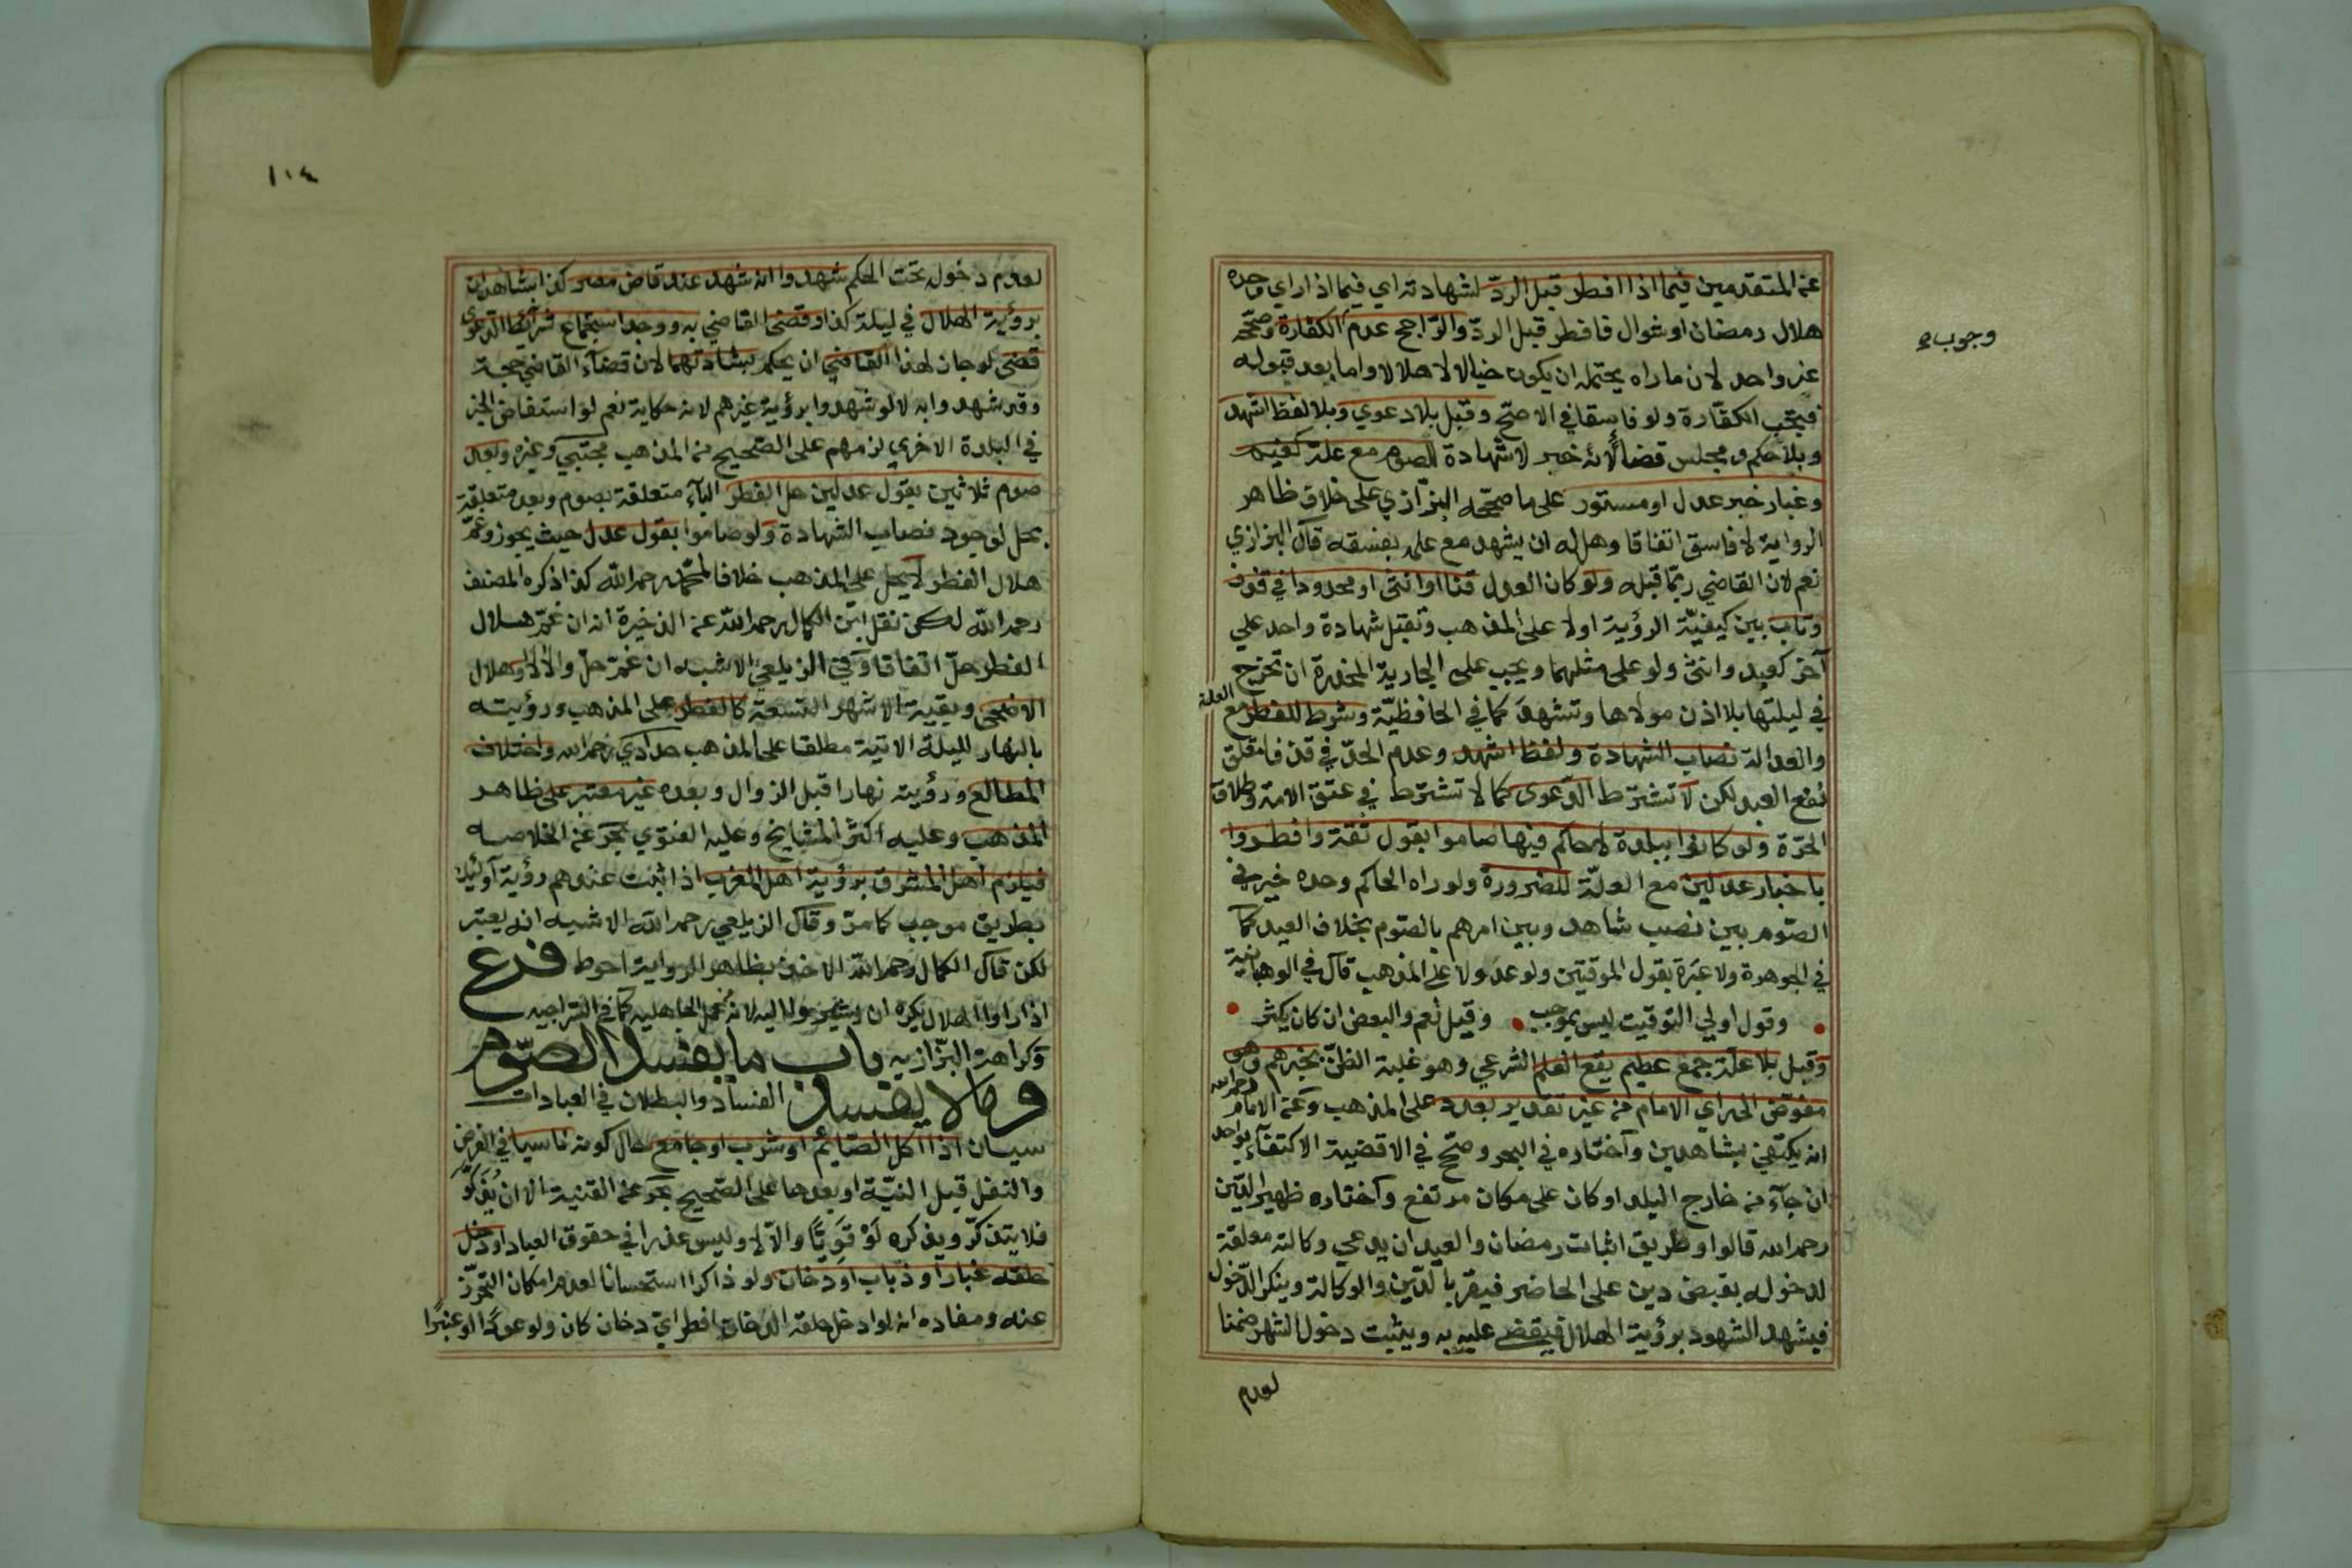 عن المتقدمين فيما اذا افطر قبل الردّ لشهادته اي فيما اذا راي وحده
هلال رمضان او شوال فافطر قبل الردّ والرّاجح عدم الكفارة وصحّحه
وجوب
غير واحد لان ما راه يحتمل ان يكون خيالا لا هلالا واما بعد قبوله
فتجب الكفّارة ولو فاسقا في الاصحّ وقبل بلا دعوي وبلا لفظ اشهد
وبلا حكم ومجلس قضاء لانه خبر لا شهادة للصوم مع علة كغيم
وغبار خبر عدل او مستور على ما صحّحه البزّازي على خلاف ظاهر
الرواية لا فاسق اتفاقا وهل له ان يشهد مع علمه بفسقه قال البزازي
نعم لان القاضي ربّما قبله ولو كان العدل قنا او انثى او محدودا في قذف
وتاب بين كيفيّة الرؤية اولا على المذهب وتقبل شهادة واحد علي
آخر كعبد وانثى ولو على مثلهما ويجب على الجارية المخدرة ان تخرج
في ليلتها بلا اذن مولاها وتشهد كما في الحافظيّة وشرط للفطر مع العلة
والعدالة نصاب الشهادة ولفظ اشهد وعدم الحدّ في قذف لتعلق
نفع العبد لكن لا تشترط الدّعوى كما لا تشترط في عتق الامة وطلاق
الحرّة ولو كانوا ببلدة لا حاكم فيها صاموا بقول ثقة وافطروا
باخبار عدلين مع العلّة للضرورة ولو راه الحاكم وحده خير في
الصّوم بين نصب شاهد وبين امرهم بالصّوم بخلاف العيد كما
في الجوهرة ولا عبرة بقول الموقتين ولو عدولا على المذهب قال في الوهبانية
وقول اولي التوقيت ليس بموجب وقيل نعم والبعض ان كان يكثر
وقبل بلا علّة جمع عظيم يقع العلم الشرعي وهو غلبة الظنّ بخبرهم وهو
مفوّض الى راي الامام من غير تقدير بعدد على المذهب وعن الامام رحمه الله
انه يكتفي بشاهدين واختاره في البحر وصحّح في الاقضية الاكتفاء بواحد
ان جآء من خارج البلد او كان على مكان مرتفع واختاره ظهير الدّين
رحمه الله قالوا وطريق اثبات رمضان والعيد ان يدعي وكالته معلقة
لدخوله بقبض دين على الحاضر فيقر بالدّين والوكالة وينكر الدّخول
فيشهد الشهود برؤية الهلال فيقضي عليه به ويثبت دخول الشهر ضمنا
لعدم
١٠٤
لعدم دخوله تحت الحكم شهدوا انه شهد عند قاض مصر كذا شاهدان
برؤية الهلال في ليلة كذا وقضى القاضي به ووجد استجماع شرآئط الدّعوى
قضى لو جاز لهذا القاضي ان يحكم بشهادتهما لان قضآء القاضي حجة
وقد شهدوا به لا لو شهدوا برؤية غيرهم لانه حكاية نعم لو استفاض الخبر
في البلدة الاخرى لزمهم على الصّحيح من المذهب مجتبي وغيره وبعد
صوم ثلاثين بقول عدلين حل الفطر البآء متعلقة بصوم وبعد متعلقة
بحل لوجود نصاب الشهادة ولو صاموا بقول عدل حيث يجوز وغمّ
هلال الفطر لا يحل على المذهب خلافا لمحمّد رحمه الله كذا ذكره المصنف
رحمه الله لكن نقل ابن الكمال رحمه الله عن الذخيرة انه ان غمّ هلال
الفطر حلّ اتفاقا وفي الزيلعي الاشبه ان غمّ حلّ والا لا وهلال
الاضحى وبقية الاشهر التسعة كالفطر على المذهب ورؤيته
بالنهار لليلة الاتية مطلقا على المذهب حدادي رحمه الله واختلاف
المطالع ورؤيته نهارا قبل الزوال وبعده غير معتبر على ظاهر
المذهب وعليه اكثر المشايخ وعليه الفتوي بحر عن الخلاصه
فيلزم اهل المشرق برؤية اهل المغرب اذا ثبت عندهم رؤية اولئك
بطريق موجب كما مرّ وقال الزيلعي رحمه الله الاشبه انه يعتبر
لكن قال الكمال رحمه الله الاخذ بظاهر الرواية احوط فرع
اذا راوا الهلال يكره ان يشيروا اليه لانه من عمل الجاهليه كما في السّراجيه
وكراهة البزّازيه باب ما يفسد الصّوم
وما لا يفسد الفساد والبطلان في العبادات
سيان اذا اكل الصّايم او شرب او جامع حال كونه ناسيا في الفرض
والنفل قبل النيّة او بعدها على الصّحيح بحر عن القنية الا ان يُذكّر
فلا يتذكّر ويذكره لو قويًّا والّا لا وليس عذرا في حقوق العباد او دخل
حلقه غبار او ذباب او دخان ولو ذاكرا استحسانا لعدم امكان التحرّز
عنه ومفاده انه لو ادخل حلقه الدخان افطر ايّ دخان كان ولو عودًا او عنبرًا